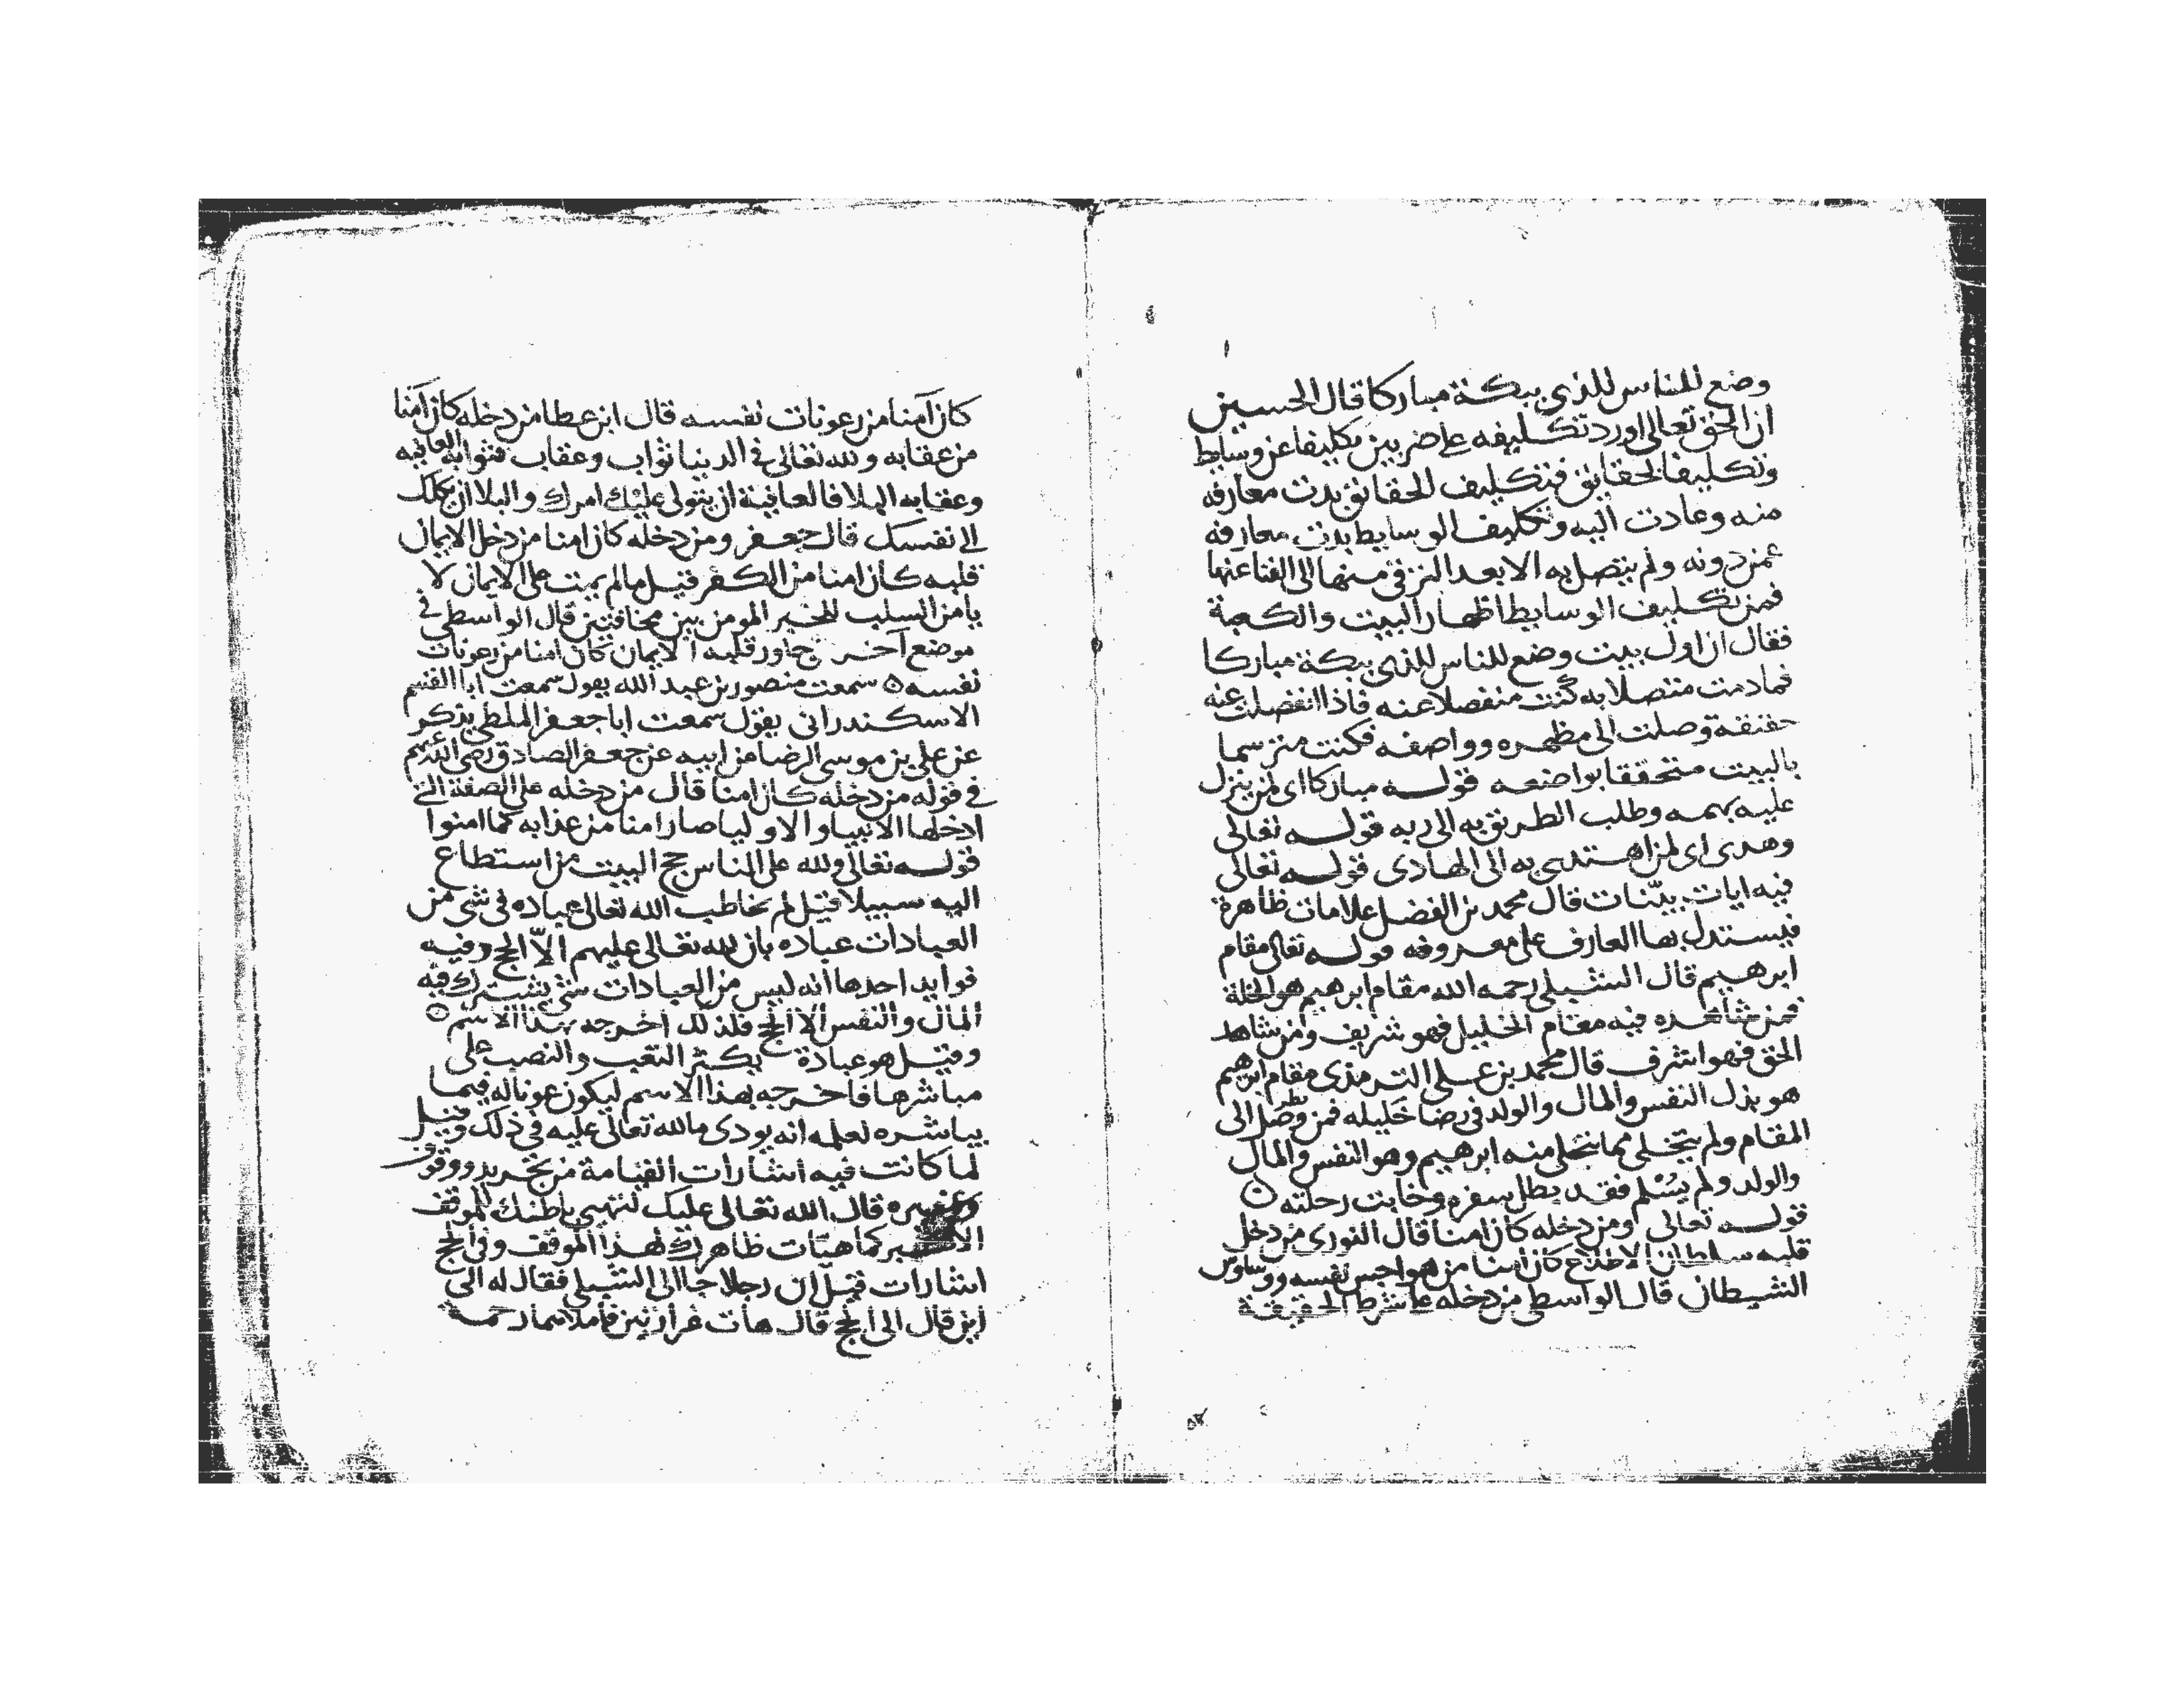 وضع للناس للذي ببكة مباركا قال الحسين
ان الحق تعالى اورد تكليفه على ضربين تكليفا عن وسايط
وتكليفا لحقايق فتكليف الحقايق بدت معارفه
منه وعادت اليه وتكليف الوسايط بدت معارفه
عمن دونه ولم يتصل به الا بعد الترقي منها الى الفنا عنها
فمن تكليف الوسايط اظهار البيت والكعبة
فقال ان اول بيت وضع للناس للذي ببكة مباركا
فمادمت متصلا به كنت منفصلا عنه فاذا انفصلت عنه
حقيقة وصلت الى مظهره وواصفه فكنت مترسما
بالبيت متحققا بواضعه قوله مباركا اى لمن ينزل
عليه بهمه وطلب الطريق به الى ربه قوله تعالى
وهدى اى لمن اهتدى به الى الهادى قوله تعالى
فيه ايات بينات قال محمد بن الفضل علامات ظاهرة
فيستدل بها العارف على معروفه قوله تعالى مقام
ابرهيم قال الشبلي رحمه الله مقام ابرهيم هو الخلة
فمن شاهده فيه مقام الخليل فهو شريف ومن شاهد
الحق فهو اشرف قال محمد بن على الترمذى مقام ابرهيم
هو بذل النفس والمال والولد فى رضا خليله فمن وصل الى
المقام ولم يتخلى مما تخلى منه ابرهيم وهو النفس والمال
والولد ولم يسلم فقد بطل سفره وخابت رحلته
قوله تعالى ومن دخله كان امنا قال النورى من دخل
قلبه سلطان الاطلاع كان امنا من هواجس نفسه ووساوس
الشيطان قال الواسطى من دخله على شرط الحقيقة
كان آمنا من رعونات نفسه قال ابن عطا من دخله كان آمنا
من عقابه ولله تعالى فى الدنيا ثواب وعقاب فثوابه العافيه
وعقابه البلا فالعافية ان يتولى عليك امرك والبلا ان يكلك
الى نفسك قال جعفر ومن دخله كان امنا من دخل الايمان
قلبه كان امنا من الكفر قيل مالم يمت على الايمان لا
يامن السلب للخبر المومن بين مخافتين قال الواسطى فى
موضع آخر جاور قلبه الايمان كان امنا من رعونات
نفسه سمعت منصور بن عبد الله يقول سمعت ابا القسم
الاسكندرانى يقول سمعت ابا جعفر الملطى يذكر
عن على بن موسى الرضا من ابيه عن جعفر الصادق رضى الله عنهم
فى قوله من دخله كان امنا قال من دخله على الصفة التى
ادخلها الانبيا والاوليا صار امنا من عذابه كما امنوا
قوله تعالى ولله على الناس حج البيت من استطاع
اليه سبيلا قيل لم يخاطب الله تعالى عباده فى شى من
العبادات عباده بان لله تعالى عليهم الا الحج وفيه
فوايد احدها انه ليس من العبادات شى يشترك فيه
المال والنفس الا الحج فلذلك اخرجه بهذا الاسم
وقيل هو عبادة يكثر التعب والنصب على
مباشرها فاخرجه بهذا الاسم ليكون عونا له فيما
يباشره لعلمه انه يودى ما لله تعالى عليه فى ذلك وقيل
لما كانت فيه اشارات القيامة من تجريد ووقوف
وغيره قال الله تعالى عليك لتهيى باطنك للموقف
الاكبر كما هيات ظاهرك لهذا الموقف وفى الحج
اشارات قيل ان رجلا جا الى الشبلى فقال له الى
اين قال الى الحج قال هات غرارتين فاملاهما رحمة